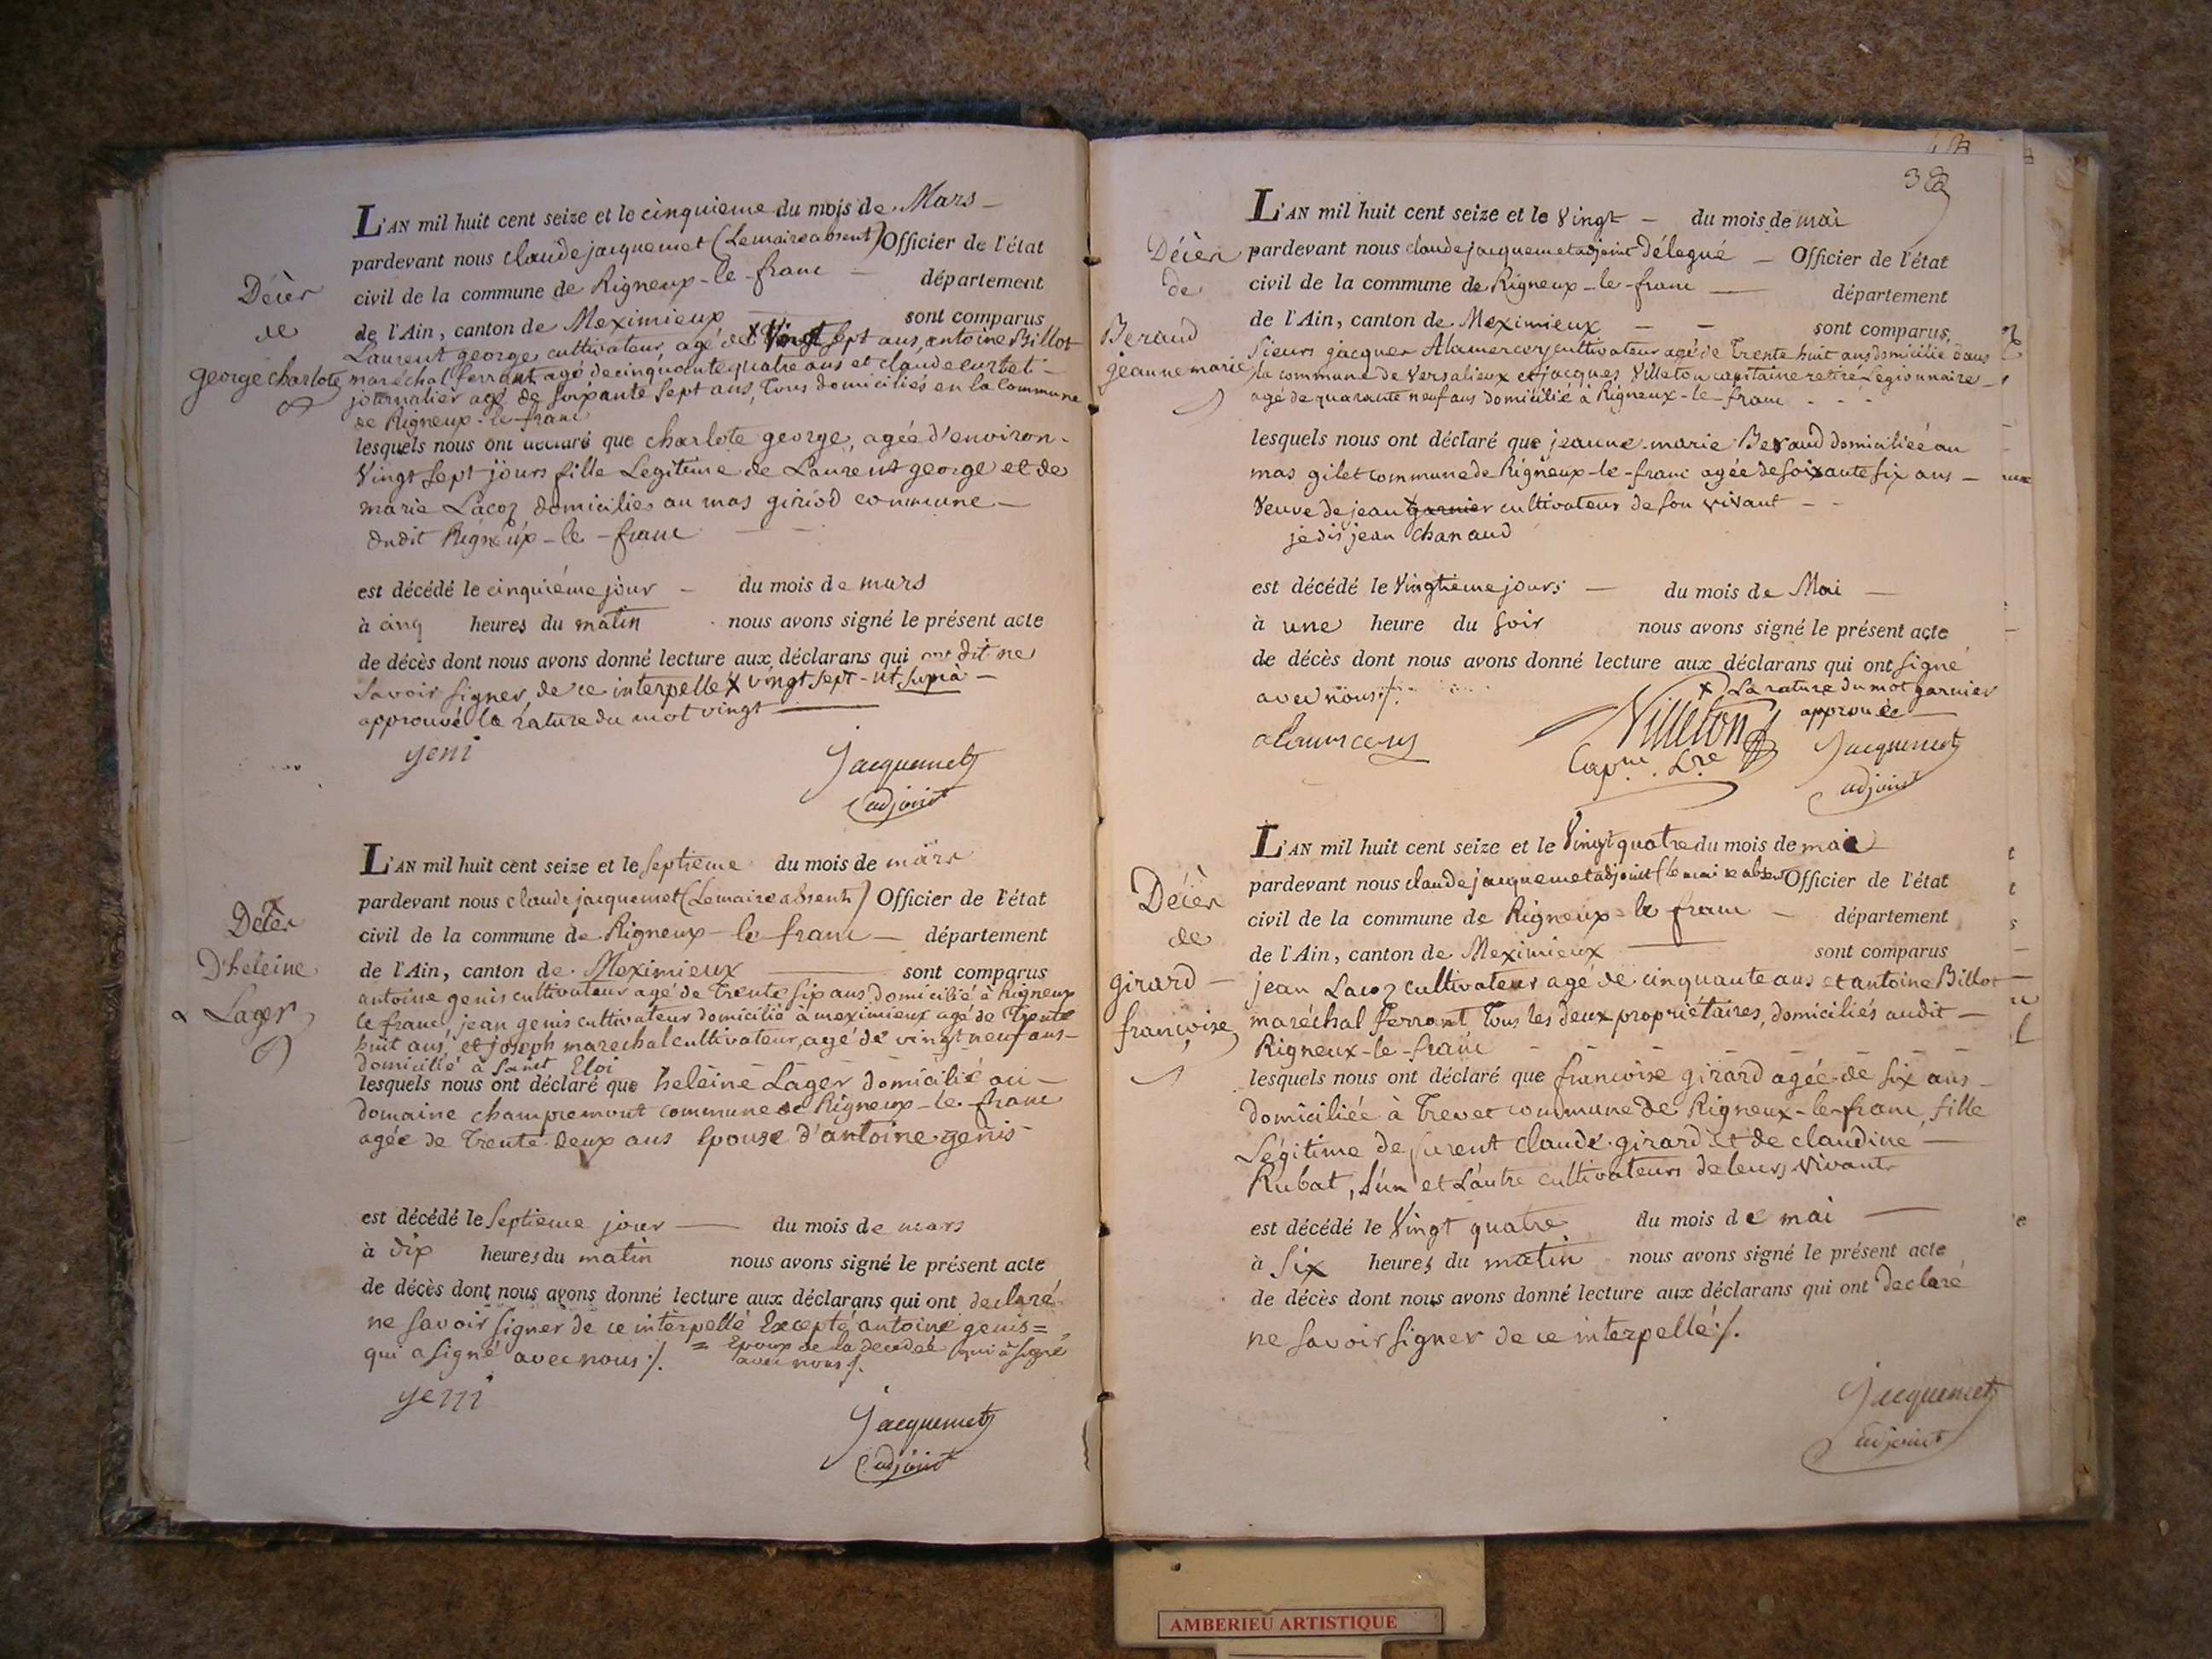 L'AN mil huit cent seize et le cinquieme du mois de Mars
pardevant nous claude jacquemet (Le maire absent) Officier de l'état
civil de la commune de Rigneux-le-franc département
de l'Ain, canton de Meximieux sont comparus
Décès
de
george charlote
Laurent george cultivateur, agé de vingt sept ans, antoine Billot
maréchal ferrant, agé de cinquante quatre ans et claude curtet
journalier agé de soixante sept ans, tous domiciliés en la Commune
de Rigneux-le-franc
lesquels nous ont déclaré que charlote george, agée d'environ
Vingt sept jours fille Legitime de Laurent george et de
marie Lacoz domicilies au mas giriod commune
dudit Rigneux-le-franc
est décédé le cinquiéme jour du mois de mars
à cinq heures du matin nous avons signé le présent acte
de décès dont nous avons donné lecture aux déclarans qui ont dit ne
Savoir signer, de ce interpellé X vingt sept - ut supra
approuvé la rature du mot vingt
yeni
jacquemet
adjoint
L'AN mil huit cent seize et le septieme du mois de mars
pardevant nous claude jacquemet (Le maire absent) Officier de l'état
civil de la commune de Rigneux-le franc département
de l'Ain, canton de Meximieux sont comparus
Décès
D'heleine
Lager
antoine genis cultivateur agé de trente six ans domicilié à Rigneux
le franc, jean genis cultivateur domicilié à meximieux agé de trente
huit ans, et joseph marechal cultivateur, agé de vingt neuf ans
domicilié à Saint Eloi
lesquels nous ont déclaré que heleine Lager domicilié au
domaine champremont commune de Rigneux-le-franc
agée de trente deux ans Epouse d'antoine genis
est décédé le septieme jour du mois de mars
à dix heures du matin nous avons signé le présent acte
de décès dont nous avons donné lecture aux déclarans qui ont declaré
ne savoir signer de ce interpellé Excepté antoine genis =
qui a signé avec nous ./. = Epoux de la decedée qui à signé
avec nous ./.
yeni
jacquemet
adjoint
38
L'AN mil huit cent seize et le Vingt du mois de mai
pardevant nous claude jacquemet adjoint Délegué Officier de l'état
civil de la commune de Rigneux-le-franc département
de l'Ain, canton de Meximieux sont comparus,
Décès
de
Beraud
jeanne marie
Sieurs jacques Alamercery cultivateur agé de trente huit ans domicilié dans
la commune de Versalieux et jacques Villeton capitaine retiré Legionnaire
agé de quarante neuf ans domicilié à Rigneux-le-franc
lesquels nous ont déclaré que jeanne-marie Beraud domiciliée au
mas gilet commune de Rigneux-le-franc agée de soixante six ans
Veuve de jean garnier cultivateur de son vivant
je dis jean chanaud
est décédé le Vingtieme jours du mois de Mai
à une heure du soir nous avons signé le présent acte
de décès dont nous avons donné lecture aux déclarans qui ont signé
avec nous ./.
X La rature du mot garnier
approuvée
alamercery
Villeton
Capne. Lre
jacquemet
adjoint
L'AN mil huit cent seize et le Vingt quatre du mois de mai
pardevant nous claude jacquemet adjoint (le maire absent Officier de l'état
civil de la commune de Rigneux-le franc département
de l'Ain, canton de Meximieux sont comparus
Décès
de
girard
françoise
jean Lacoz cultivateur agé de cinquante ans et antoine Billot
maréchal ferrant, tous les deux propriétaires, domiciliés audit
Rigneux-le-franc
lesquels nous ont déclaré que françoise girard agée de six ans
domiciliée à trevet commune de Rigneux-le-franc, fille
Légitime de furent claude girard et de claudine
Rubat, l'un et l'autre cultivateurs de leurs vivants
est décédé le Vingt quatre du mois de mai
à six heures du matin nous avons signé le présent acte
de décès dont nous avons donné lecture aux déclarans qui ont declaré
ne savoir signer de ce interpellé ./.
jacquemet
adjoint
AMBERIEU ARTISTIQUE